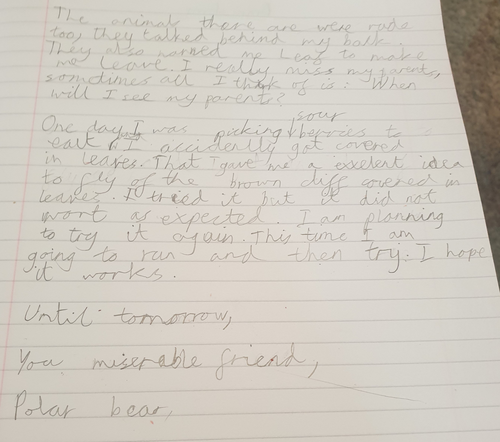 The animal there are were rude
too, they talked behind my back.
They also named me Leaf to make
me leave. I really miss my parents,
sometimes all I think of is: When
will I see my parents?
sour
One day, I was picking berries to
eat I accidently got covered
in leaves. That I gave me a exelent idea
to fly of the brown cliff covered in
leaves. I tried it but it did not
wort as expected. I am planning
to try it again. This time I am
going to run and then try. I hope
it works.
Until tomorrow,
You miserable friend,
Polar bear,